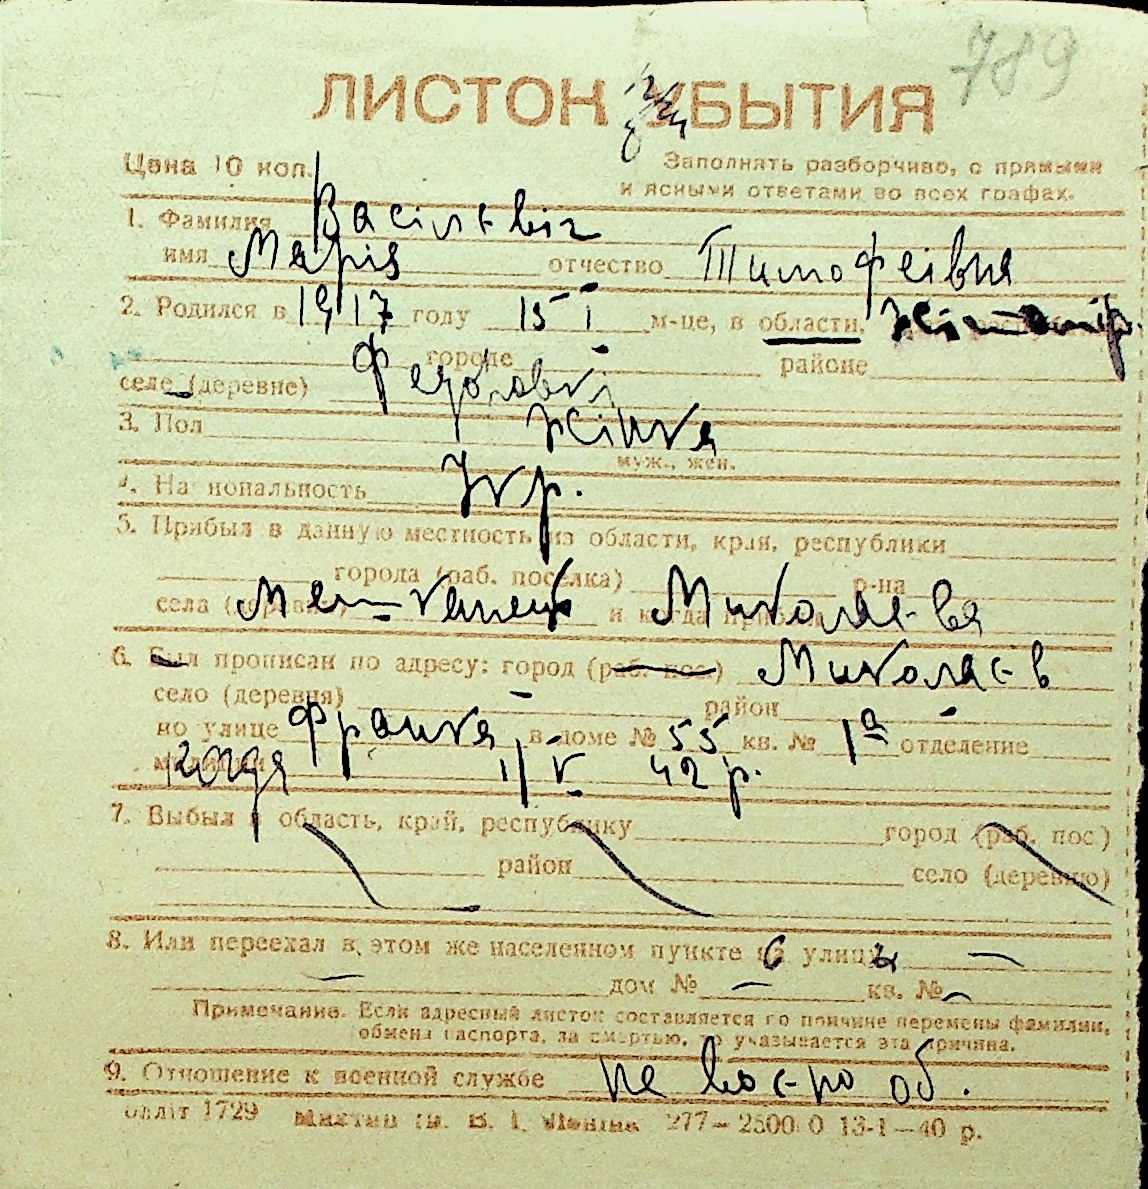 789
ЛИСТОК УБЫТИЯ
Цена 10 коп.
Заполнять разборчиво, с прямыми
и ясными ответами во всех графах.
1. Фамилия Васілєвіч
имя Марія отчество Тимофеівна
2. Родился в 1917 году 15 І м-це, в области, Житомір.
городе районе
селе (деревне) Федоровкі
3. Пол жінка
муж., жен.
4. Национальность Укр.
5. Прибыл в данную местность из области, края, республики
города (раб. поселка) р-на
села (деревни) и когда прибыл мешканець Миколаєва
6. Был прописан по адресу: город (раб. пос.) Миколаєв
село (деревня) район
по улице Франка в доме № 55 кв. № 1а отделение
милиции 1/V 42 р.
7. Выбыл в область, край, республику город (раб. пос.)
район село (деревню)
8. Или переехал в этом же населенном пункте на улицу
дом № кв. №
Примечание. Если адресный листок составляется по причине перемены фамилии,
обмена паспорта, за смертью, то указывается эта причина.
9. Отношение к военной службе не воєнно об.
1729 277—2500 0 13-1—40 р.